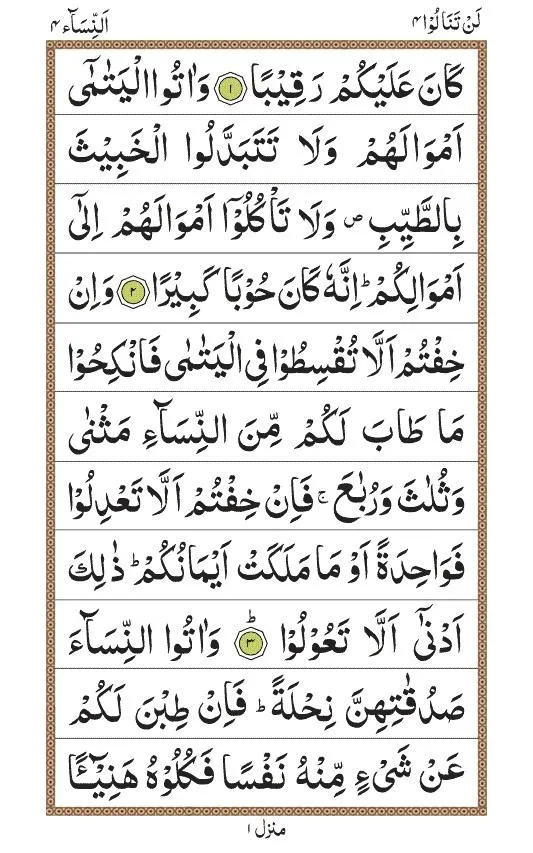 لَنْ تَنَالُوْا ٤ اَلنِّسَآء ٤
كَانَ عَلَيْكُمْ رَقِيْبًا ١ وَاٰتُوا الْيَتٰمٰٓى
اَمْوَالَهُمْ وَلَا تَتَبَدَّلُوا الْخَبِيْثَ
بِالطَّيِّبِ ص وَلَا تَاْكُلُوْٓا اَمْوَالَهُمْ اِلٰٓى
اَمْوَالِكُمْ ط اِنَّهٗ كَانَ حُوْبًا كَبِيْرًا ٢ وَاِنْ
خِفْتُمْ اَلَّا تُقْسِطُوْا فِى الْيَتٰمٰى فَانْكِحُوْا
مَا طَابَ لَكُمْ مِّنَ النِّسَآءِ مَثْنٰى
وَثُلٰثَ وَرُبٰعَ ج فَاِنْ خِفْتُمْ اَلَّا تَعْدِلُوْا
فَوَاحِدَةً اَوْ مَا مَلَكَتْ اَيْمَانُكُمْ ط ذٰلِكَ
اَدْنٰٓى اَلَّا تَعُوْلُوْا ط ٣ وَاٰتُوا النِّسَآءَ
صَدُقٰتِهِنَّ نِحْلَةً ط فَاِنْ طِبْنَ لَكُمْ
عَنْ شَىْءٍ مِّنْهُ نَفْسًا فَكُلُوْهُ هَنِيْٓـًٔا
منزل ١